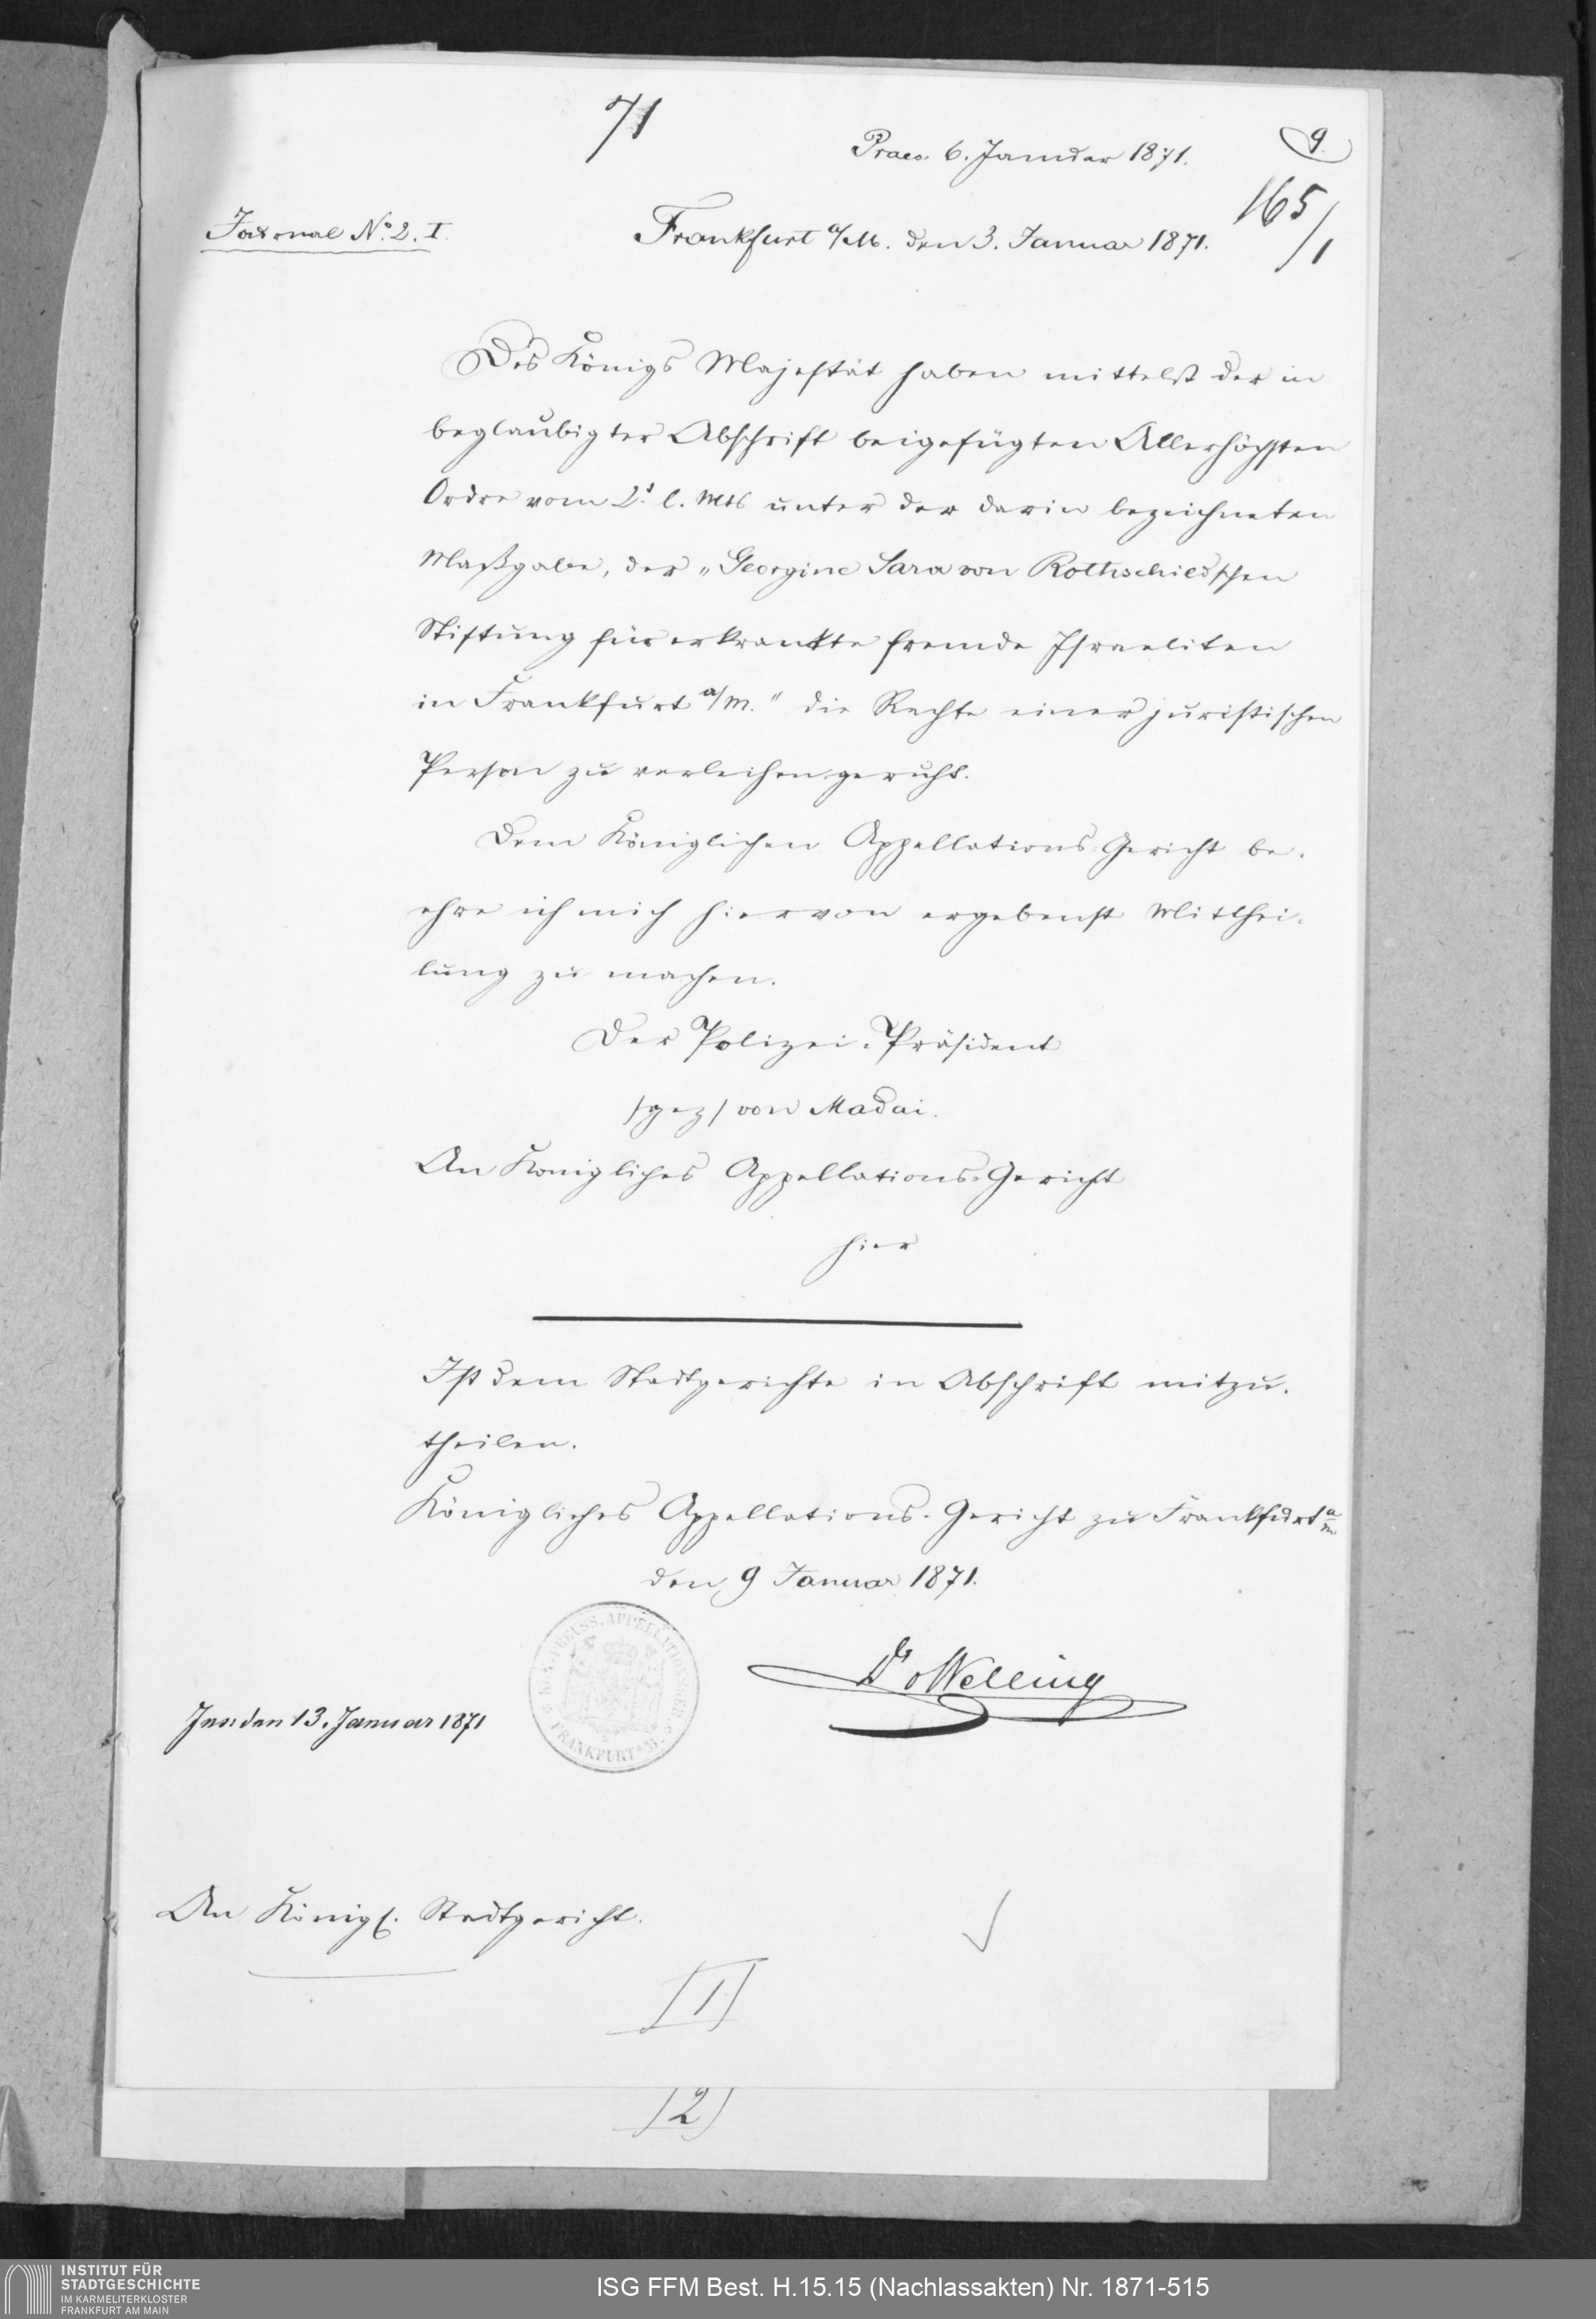 71
Praes. 6. Januar 1871.
9.
165/1
Journal No. 2. I.
Frankfurt a/M. den 3. Januar 1871.
Des Königs Majestät haben mittelst der in
beglaubigter Abschrift beigefügten Allerhöchsten
Ordre vom l. Mts unter der darin bezeichneten
Maßgabe, der „Georgine Sara von Rothschild'schen
Stiftung für erkrankte fremde Israeliten
in Frankfurt a/M." die Rechte einer juristischen
Person zu verleihen geruht.
Dem Königlichen Appellations-Gericht be-
ehre ich mich hiervon ergebenst Mitthei-
lung zu machen.
Der Polizei-Präsident
/gez/ von Madai.
An Königliches Appellations-Gericht
hier
Ist dem Stadtgerichte in Abschrift mitzu-
theilen.
Königliches Appellations-Gericht zu Frankfurt a/m
den 9 Januar 1871.
KÖN. PREUSS. APPELLATIONSGER. FRANKFURT A. M.
Dr Welling
Ins: den 13. Januar 1871
An Königl. Stadtgericht.
1)
2)
INSTITUT FÜR
STADTGESCHICHTE
IM KARMELITERKLOSTER
FRANKFURT AM MAIN
ISG FFM Best. H.15.15 (Nachlassakten) Nr. 1871-515